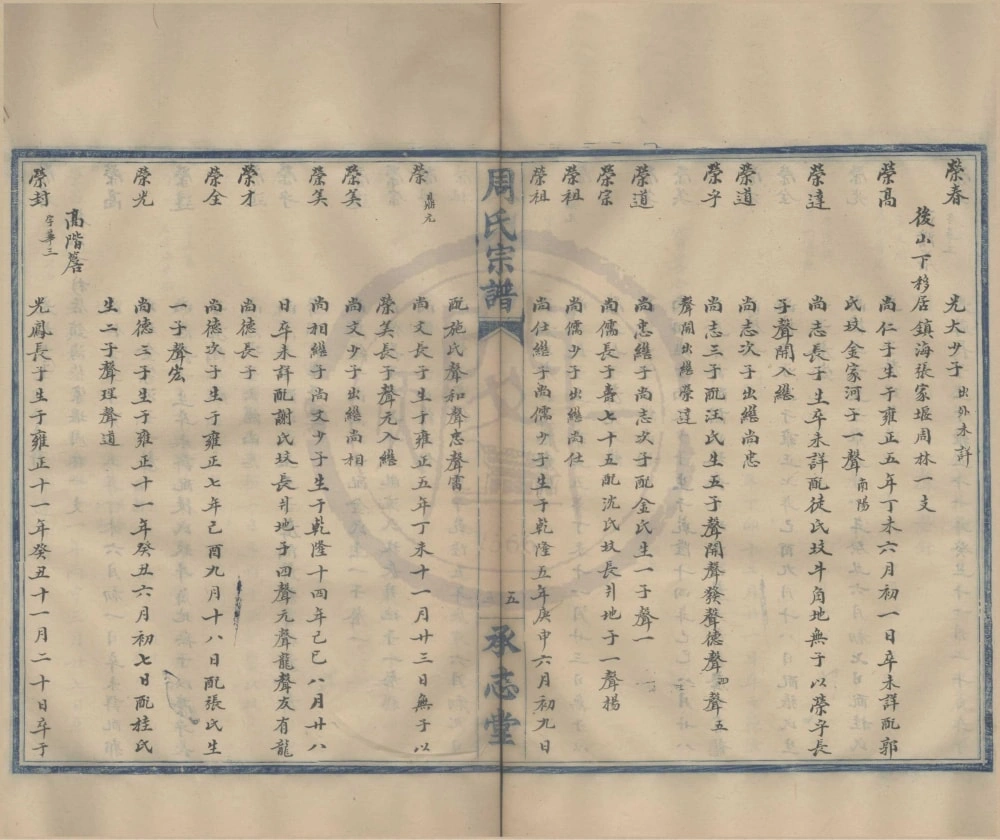 榮春 光大少子 出外未詳
後山下移居鎮海張家堰周林一支
榮高 尚仁子生于雍正五年丁未六月初一日卒未詳配郭
氏坟金家河子一聲南陽
榮達 尚志長子生卒未詳配徒氏坟斗角地無子以榮孚長
子聲開入繼
榮道 尚志次子出繼尚忠
榮孚 尚志三子配汪氏生五子聲開聲發聲德聲四聲五
聲開出繼榮達
榮道 尚忠繼子尚志次子配金氏生一子聲一
榮宗 尚儒長子壽七十五配沈氏坟長引地子一聲揚
榮祖 尚儒少子出繼尚仕
榮祖 尚仕繼子尚儒少子生于乾隆五年庚申六月初九日
周氏宗譜 五 承志堂
配施氏聲和聲忠聲雷
榮鼎元 尚文長子生于雍正五年丁未十一月廿三日無子以
榮美長子聲元入繼
榮美 尚文少子出繼尚相
榮美 尚相繼子尚文少子生于乾隆十四年己巳八月廿八
日卒未詳配謝氏坟長引地子四聲元聲龍聲友有龍
榮才 尚德長子
榮全 尚德次子生于雍正七年己酉九月十八日配張氏生
一子聲宏
榮光 尚德三子生于雍正十一年癸丑六月初七日配桂氏
生二子聲理聲道
高階簷
榮封字華三 光鳳長子生于雍正十一年癸丑十一月二十日卒于